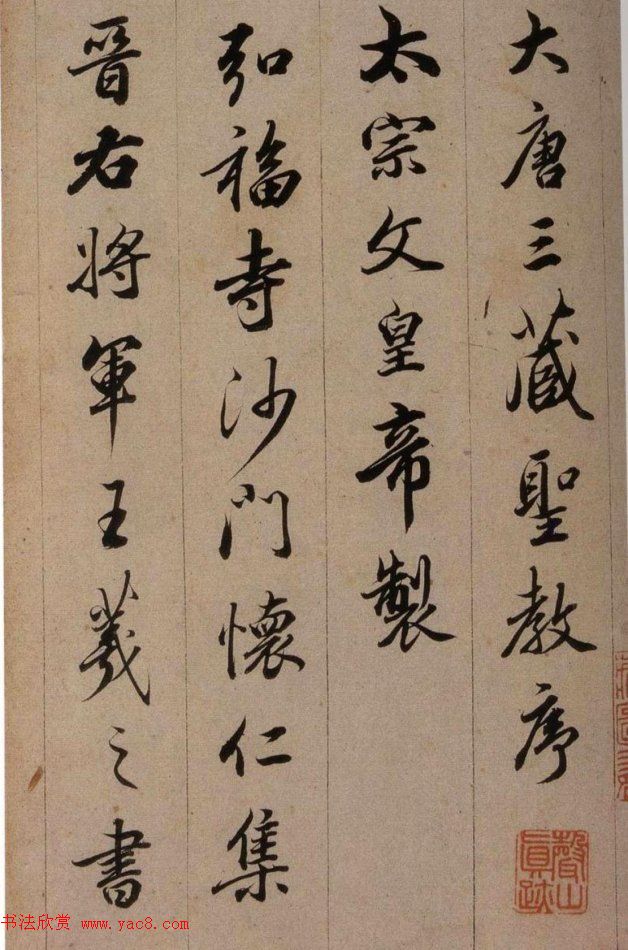 大唐三藏聖教序
太宗文皇帝製
弘福寺沙門懷仁集
晉右將軍王羲之書
書法欣赏 www.yac8.com